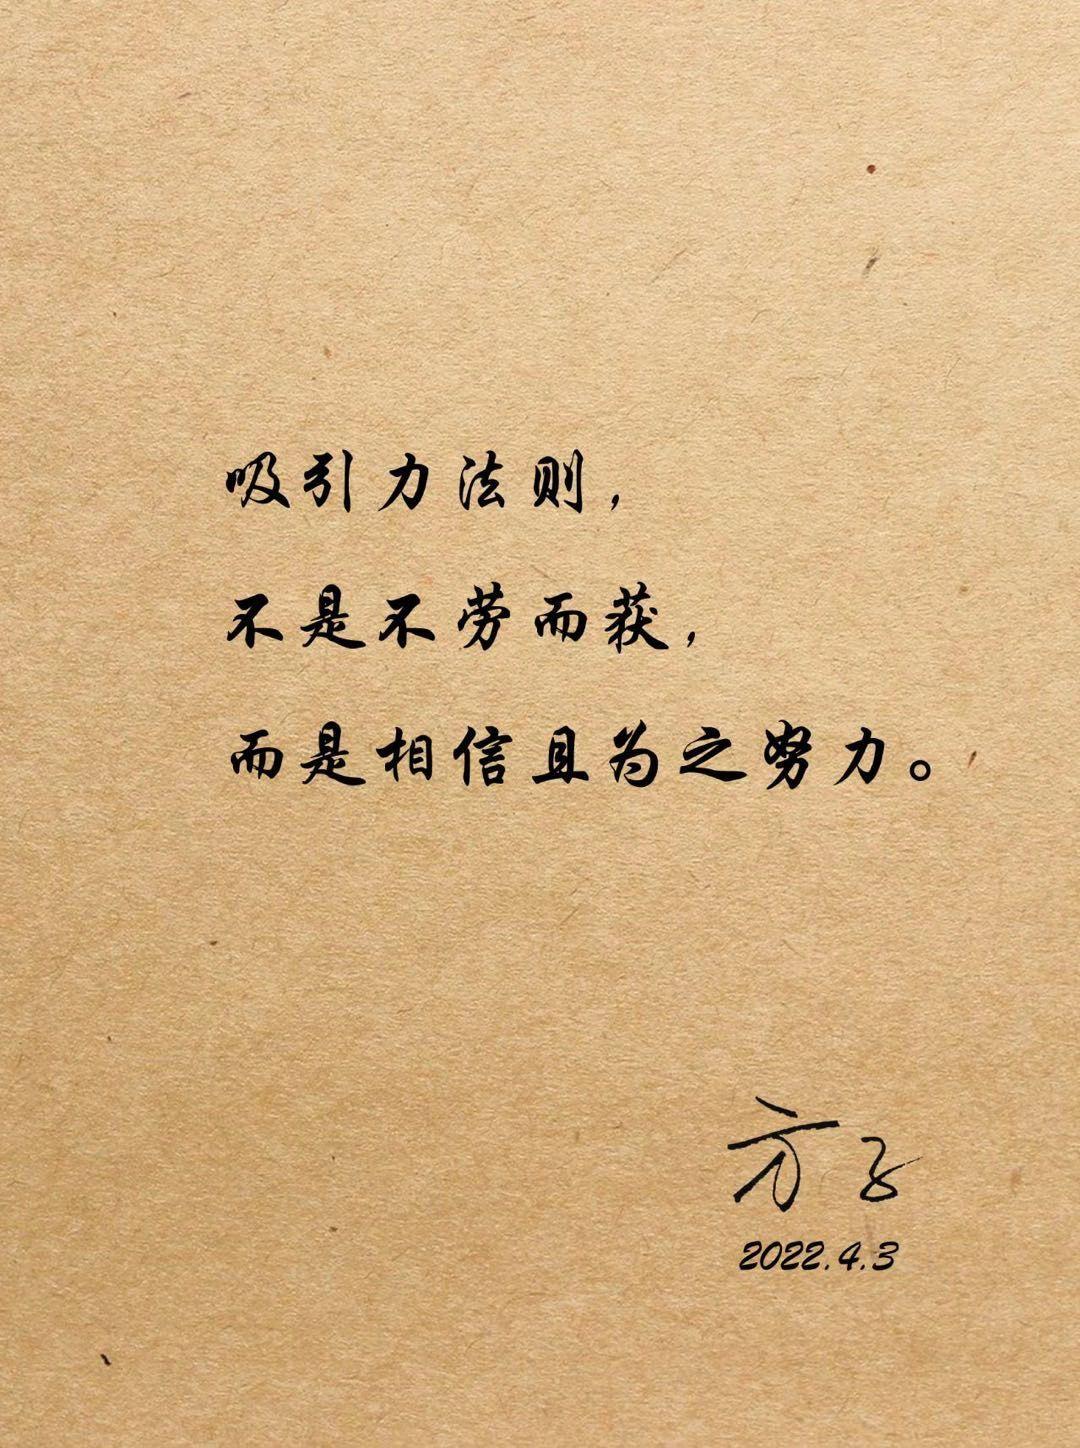 吸引力法则，
不是不劳而获，
而是相信且为之努力。
方子
2022.4.3